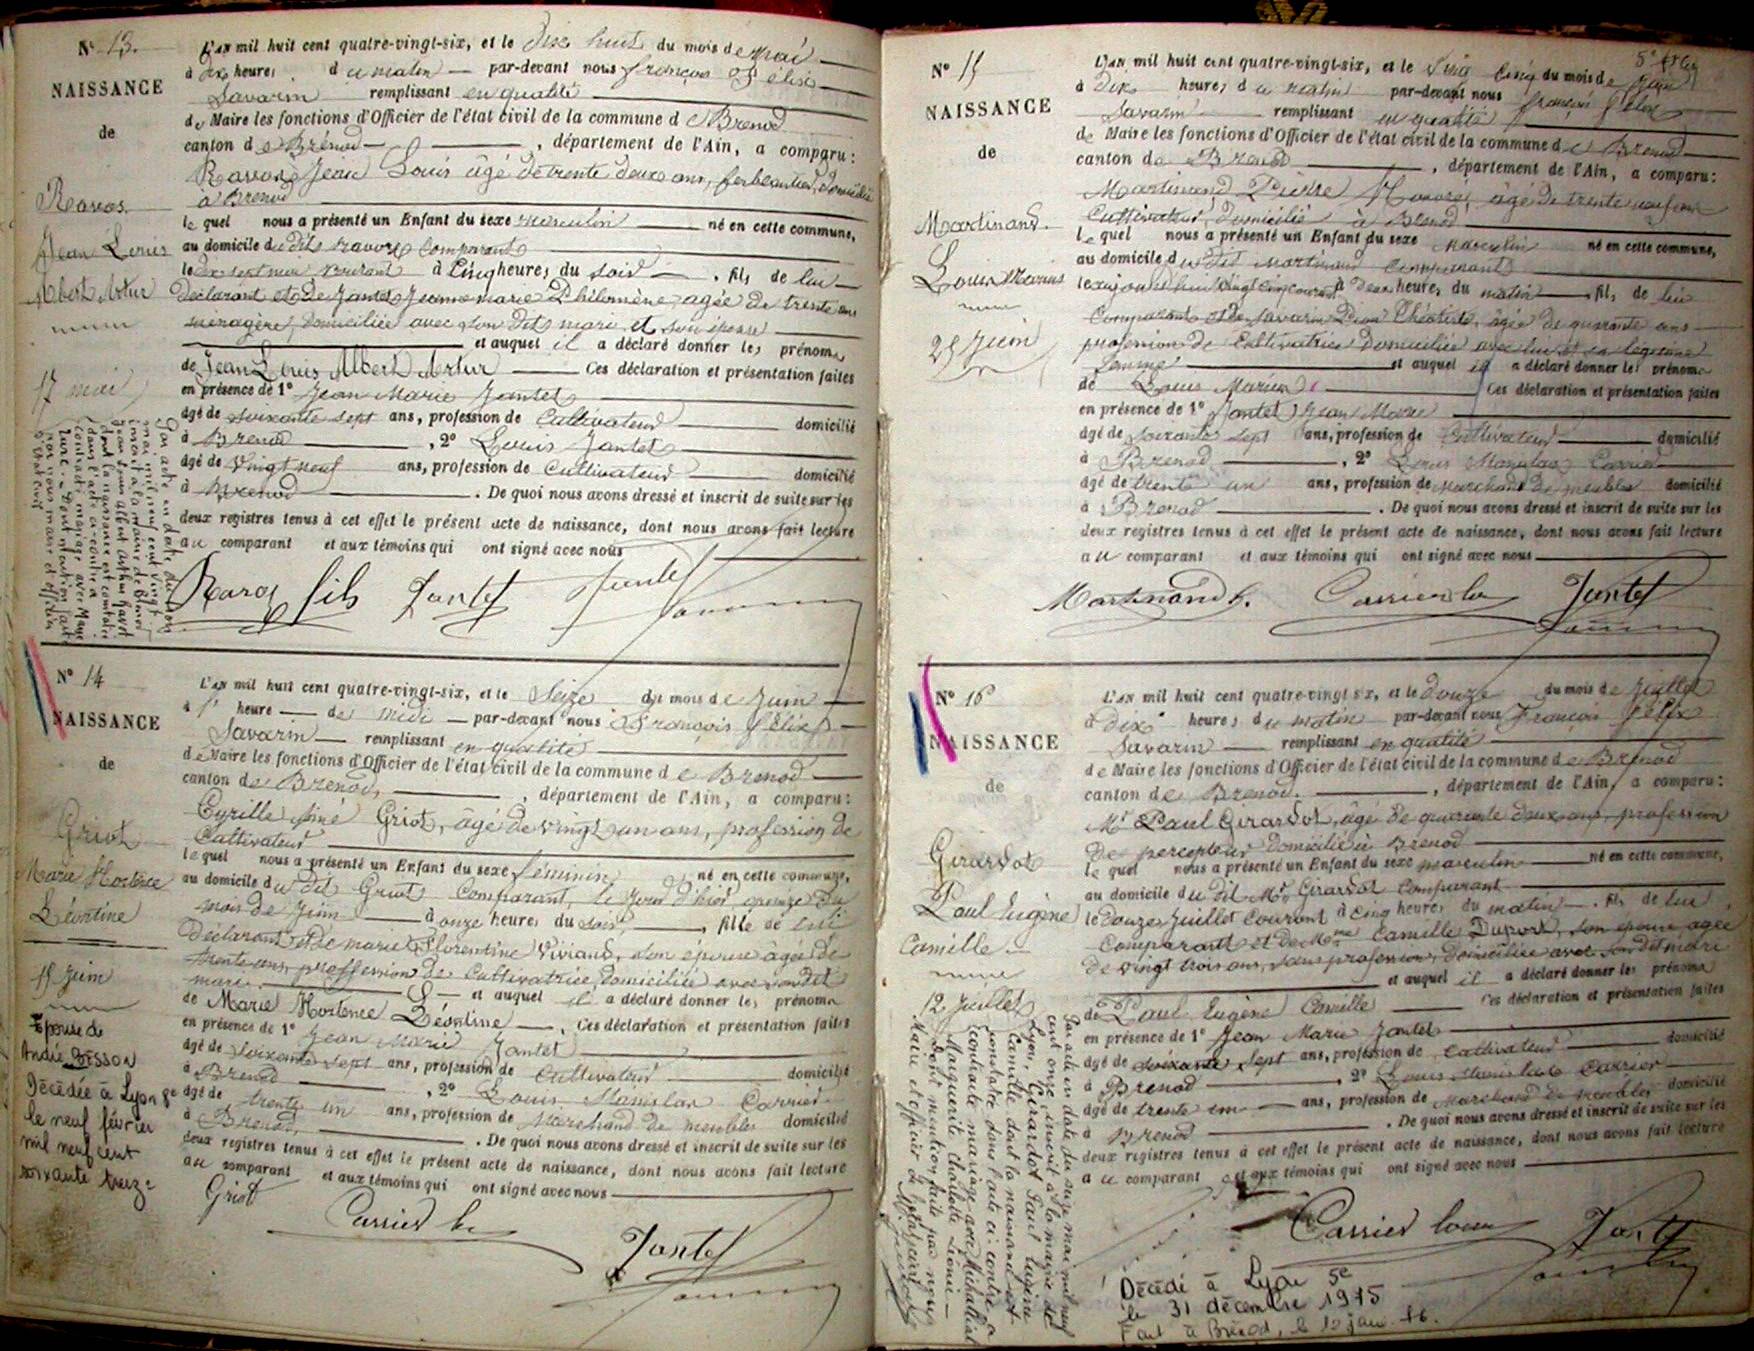 N° 13.
NAISSANCE
de
Ravos
Jean Louis
Albert Artur
17 mai
L'AN mil huit cent quatre-vingt-six, et le dix huit du mois de Mai
à dix heures du matin par-devant nous françois félix
Savarin remplissant en qualité
de Maire les fonctions d'Officier de l'état civil de la commune de Brenod
canton de Brénod, département de l'Ain, a comparu:
Jean Louis âgé de trente deux ans, ferblantier, domicilié
à Brenod
lequel nous a présenté un Enfant du sexe masculin né en cette commune,
au domicile dudit comparant
le dix sept mai courant à cinq heures du soir, fils de lui
déclarant et de Jantet Jeanne marie Philomène agée de trente ans
ménagère, domiciliée avec son dit mari et son épouse
et auquel il a déclaré donner les prénoms
de Jean Louis Albert Artur Ces déclaration et présentation faites
en présence de 1° Jean Marie Jantet
âgé de soixante sept ans, profession de Cultivateur domicilié
à Brenod, 2° Louis Jantet
âgé de vingt neuf ans, profession de cultivateur domicilié
à Brenod. De quoi nous avons dressé et inscrit de suite sur les
deux registres tenus à cet effet le présent acte de naissance, dont nous avons fait lecture
au comparant et aux témoins qui ont signé avec nous
fils Jantet Jantet
N° 14
NAISSANCE
de
Griot
Marie Hortence
Léontine
15 Juin
Epouse de
André BESSON
Décédée à Lyon 8e
le neuf février
mil neuf cent
soixante treize
L'AN mil huit cent quatre-vingt-six, et le Seize du mois de Juin
à 1 heure de midi par-devant nous François félix
Savarin remplissant en qualité
de Maire les fonctions d'Officier de l'état civil de la commune de Brenod
canton de Brenod, département de l'Ain, a comparu:
Cyrille Griot, âgé de vingt un ans, profession de
Cultivateur
lequel nous a présenté un Enfant du sexe féminin né en cette commune,
au domicile du dit Griot comparant, le jour d'hier quinze du
mois de Juin à onze heures du soir, fille de lui
déclarant et de marie Florentine Viviand, son épouse âgée de
trente ans, proffession de Cultivatrice, domiciliée avec son dit
mari. et auquel il a déclaré donner les prénoms
de Marie Hortence Léontine. Ces déclaration et présentation faites
en présence de 1° Jean Marie Jantet
âgé de soixante sept ans, profession de Cultivateur domicilié
à Brenod, 2° Louis Stanislas Carrier
âgé de trente un ans, profession de Marchand de meubles domicilié
à Brenod. De quoi nous avons dressé et inscrit de suite sur les
deux registres tenus à cet effet le présent acte de naissance, dont nous avons fait lecture
au comparant et aux témoins qui ont signé avec nous
Griot
Carrier Jantet
N° 15
NAISSANCE
de
Martinand.
Louis Marius
25 Juin
L'AN mil huit cent quatre-vingt-six, et le vingt cinq du mois de Juin
à dix heures du matin par-devant nous françois félix
Savarin remplissant en qualité
de Maire les fonctions d'Officier de l'état civil de la commune de Brenod
canton de Brenod, département de l'Ain, a comparu:
Martinand Pierre Honoré, âgé de trente neuf ans
Cultivateur, domicilié à Brenod
lequel nous a présenté un Enfant du sexe Masculin né en cette commune,
au domicile du dit Martinand comparant
le aujourd'hui vingt cinq courant à deux heures du matin, fils de lui
Comparant et de Savarin Théotiste, âgée de quarante ans
profession de Cultivatrice domiciliée avec lui et sa légitime
femme et auquel il a déclaré donner les prénoms
de Louis Marius Ces déclaration et présentation faites
en présence de 1° Jantet Jean Marie
âgé de soixante sept ans, profession de Cultivateur domicilié
à Brenod, 2° Louis Stanislas Carrier
âgé de trente un ans, profession de marchand de meubles domicilié
à Brenod. De quoi nous avons dressé et inscrit de suite sur les
deux registres tenus à cet effet le présent acte de naissance, dont nous avons fait lecture
au comparant et aux témoins qui ont signé avec nous
Martinand h. Carrier Jantet
N° 16
NAISSANCE
de
Girardot
Paul Eugène
Camille
12 Juillet
L'AN mil huit cent quatre-vingt six, et le douze du mois de Juillet
à dix heures du matin par-devant nous François Félix
Savarin remplissant en qualité
de Maire les fonctions d'Officier de l'état civil de la commune de Brenod
canton de Brenod, département de l'Ain, a comparu:
Mr Paul Girardot, âgé de quarante deux ans, profession
de percepteur domicilié à Brenod
lequel nous a présenté un Enfant du sexe masculin né en cette commune,
au domicile du dit Mr Girardot comparant
le douze Juillet courant à cinq heures du matin, fils de lui
Comparant et de Mme Camille Duport, son épouse agée
de vingt trois ans, sans profession, domiciliée avec son dit mari
et auquel il a déclaré donner les prénoms
de Paul Eugène Camille Ces déclaration et présentation faites
en présence de 1° Jean Marie Jantet
âgé de soixante sept ans, profession de Cultivateur domicilié
à Brenod, 2° Louis Stanislas Carrier
âgé de trente un ans, profession de Marchand de meubles domicilié
à Brenod. De quoi nous avons dressé et inscrit de suite sur les
deux registres tenus à cet effet le présent acte de naissance, dont nous avons fait lecture
au comparant et aux témoins qui ont signé avec nous
Carrier Jantet
Décédé à Lyon 5e
le 31 décembre 1975
Fait à Brénod, le 12 janv. 76.
Par acte en date du seize mai mil neuf
cent onze, inscrit à la mairie de
Lyon, Girardot Paul Eugène
Camille dont la naissance est
constatée dans l'acte ci-contre a
contracté mariage avec
Marguerite Charlotte Léonie
Dont mention faite par nous
Maire et officier de l'état civil